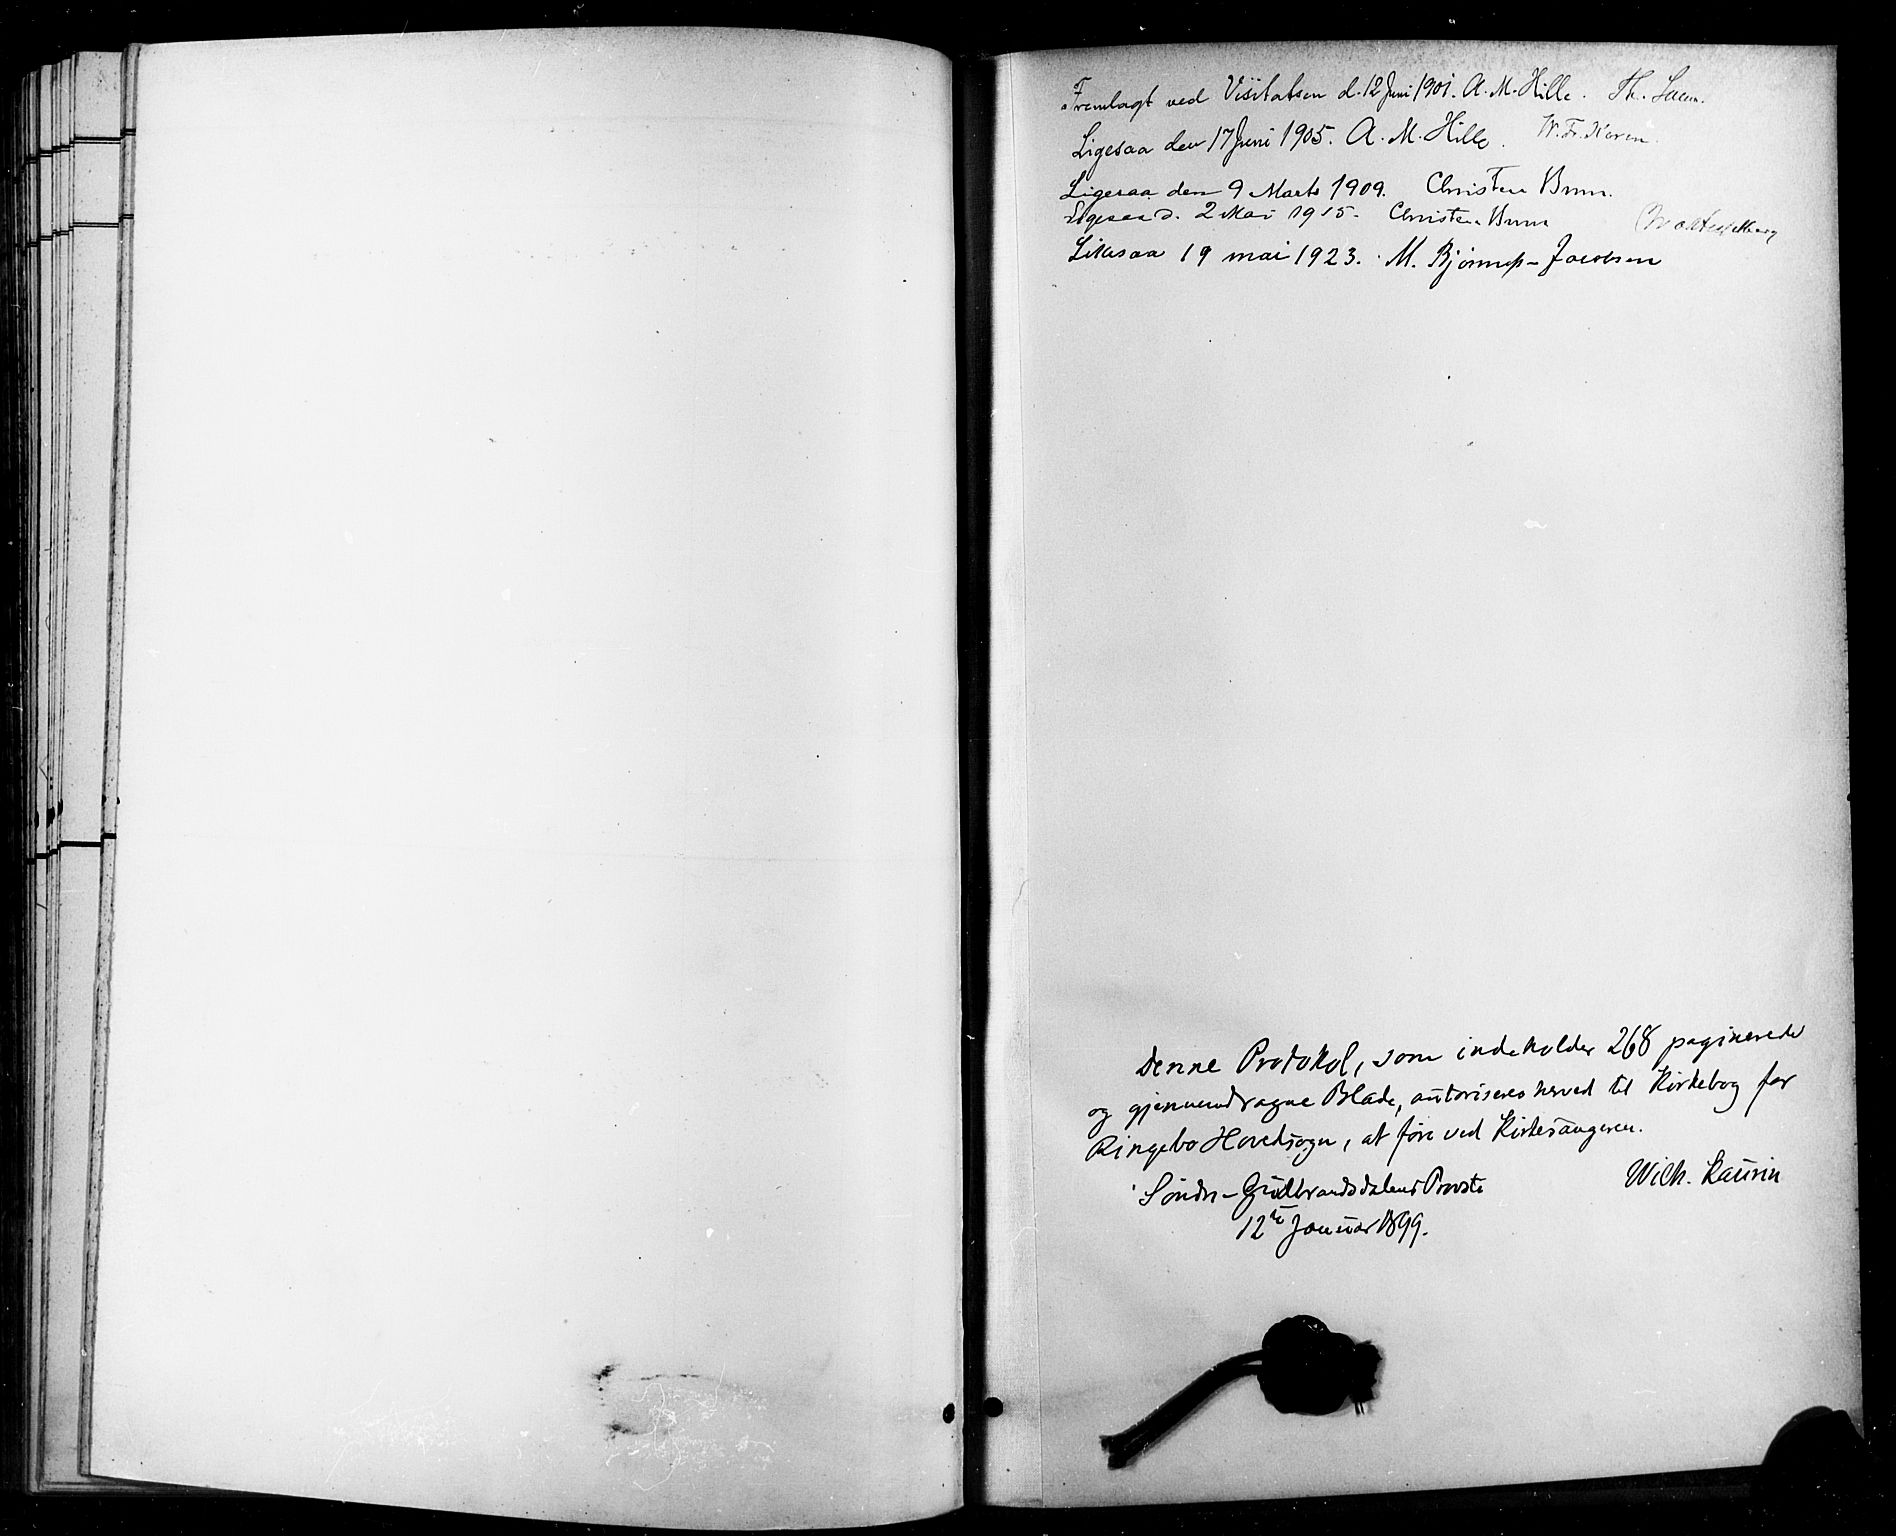 Fremlagt ved Visitatsen d. 12 Juni 1901. A. M. Hille. Th.
Ligesaa den 17 Juni 1905. A. M. Hille. W. Fr. Koren.
Ligesaa den 9 Marts 1909. Christen Brun.
Ligesaa d. 2 Mai 1915. Christen Brun
Likesaa 19 mai 1923. M. Bjønnes-Jacobsen
Denne Protokol, som indeholder 268 paginerede
og gjennemdragne Blade, autoriseres herved til Kirkebog for
Ringebo Hovedsogn, at føre ved Kirkesangeren.
Søndre-Gudbrandsdalens Provsti Wilh. Laurin
12te Januar 1899.